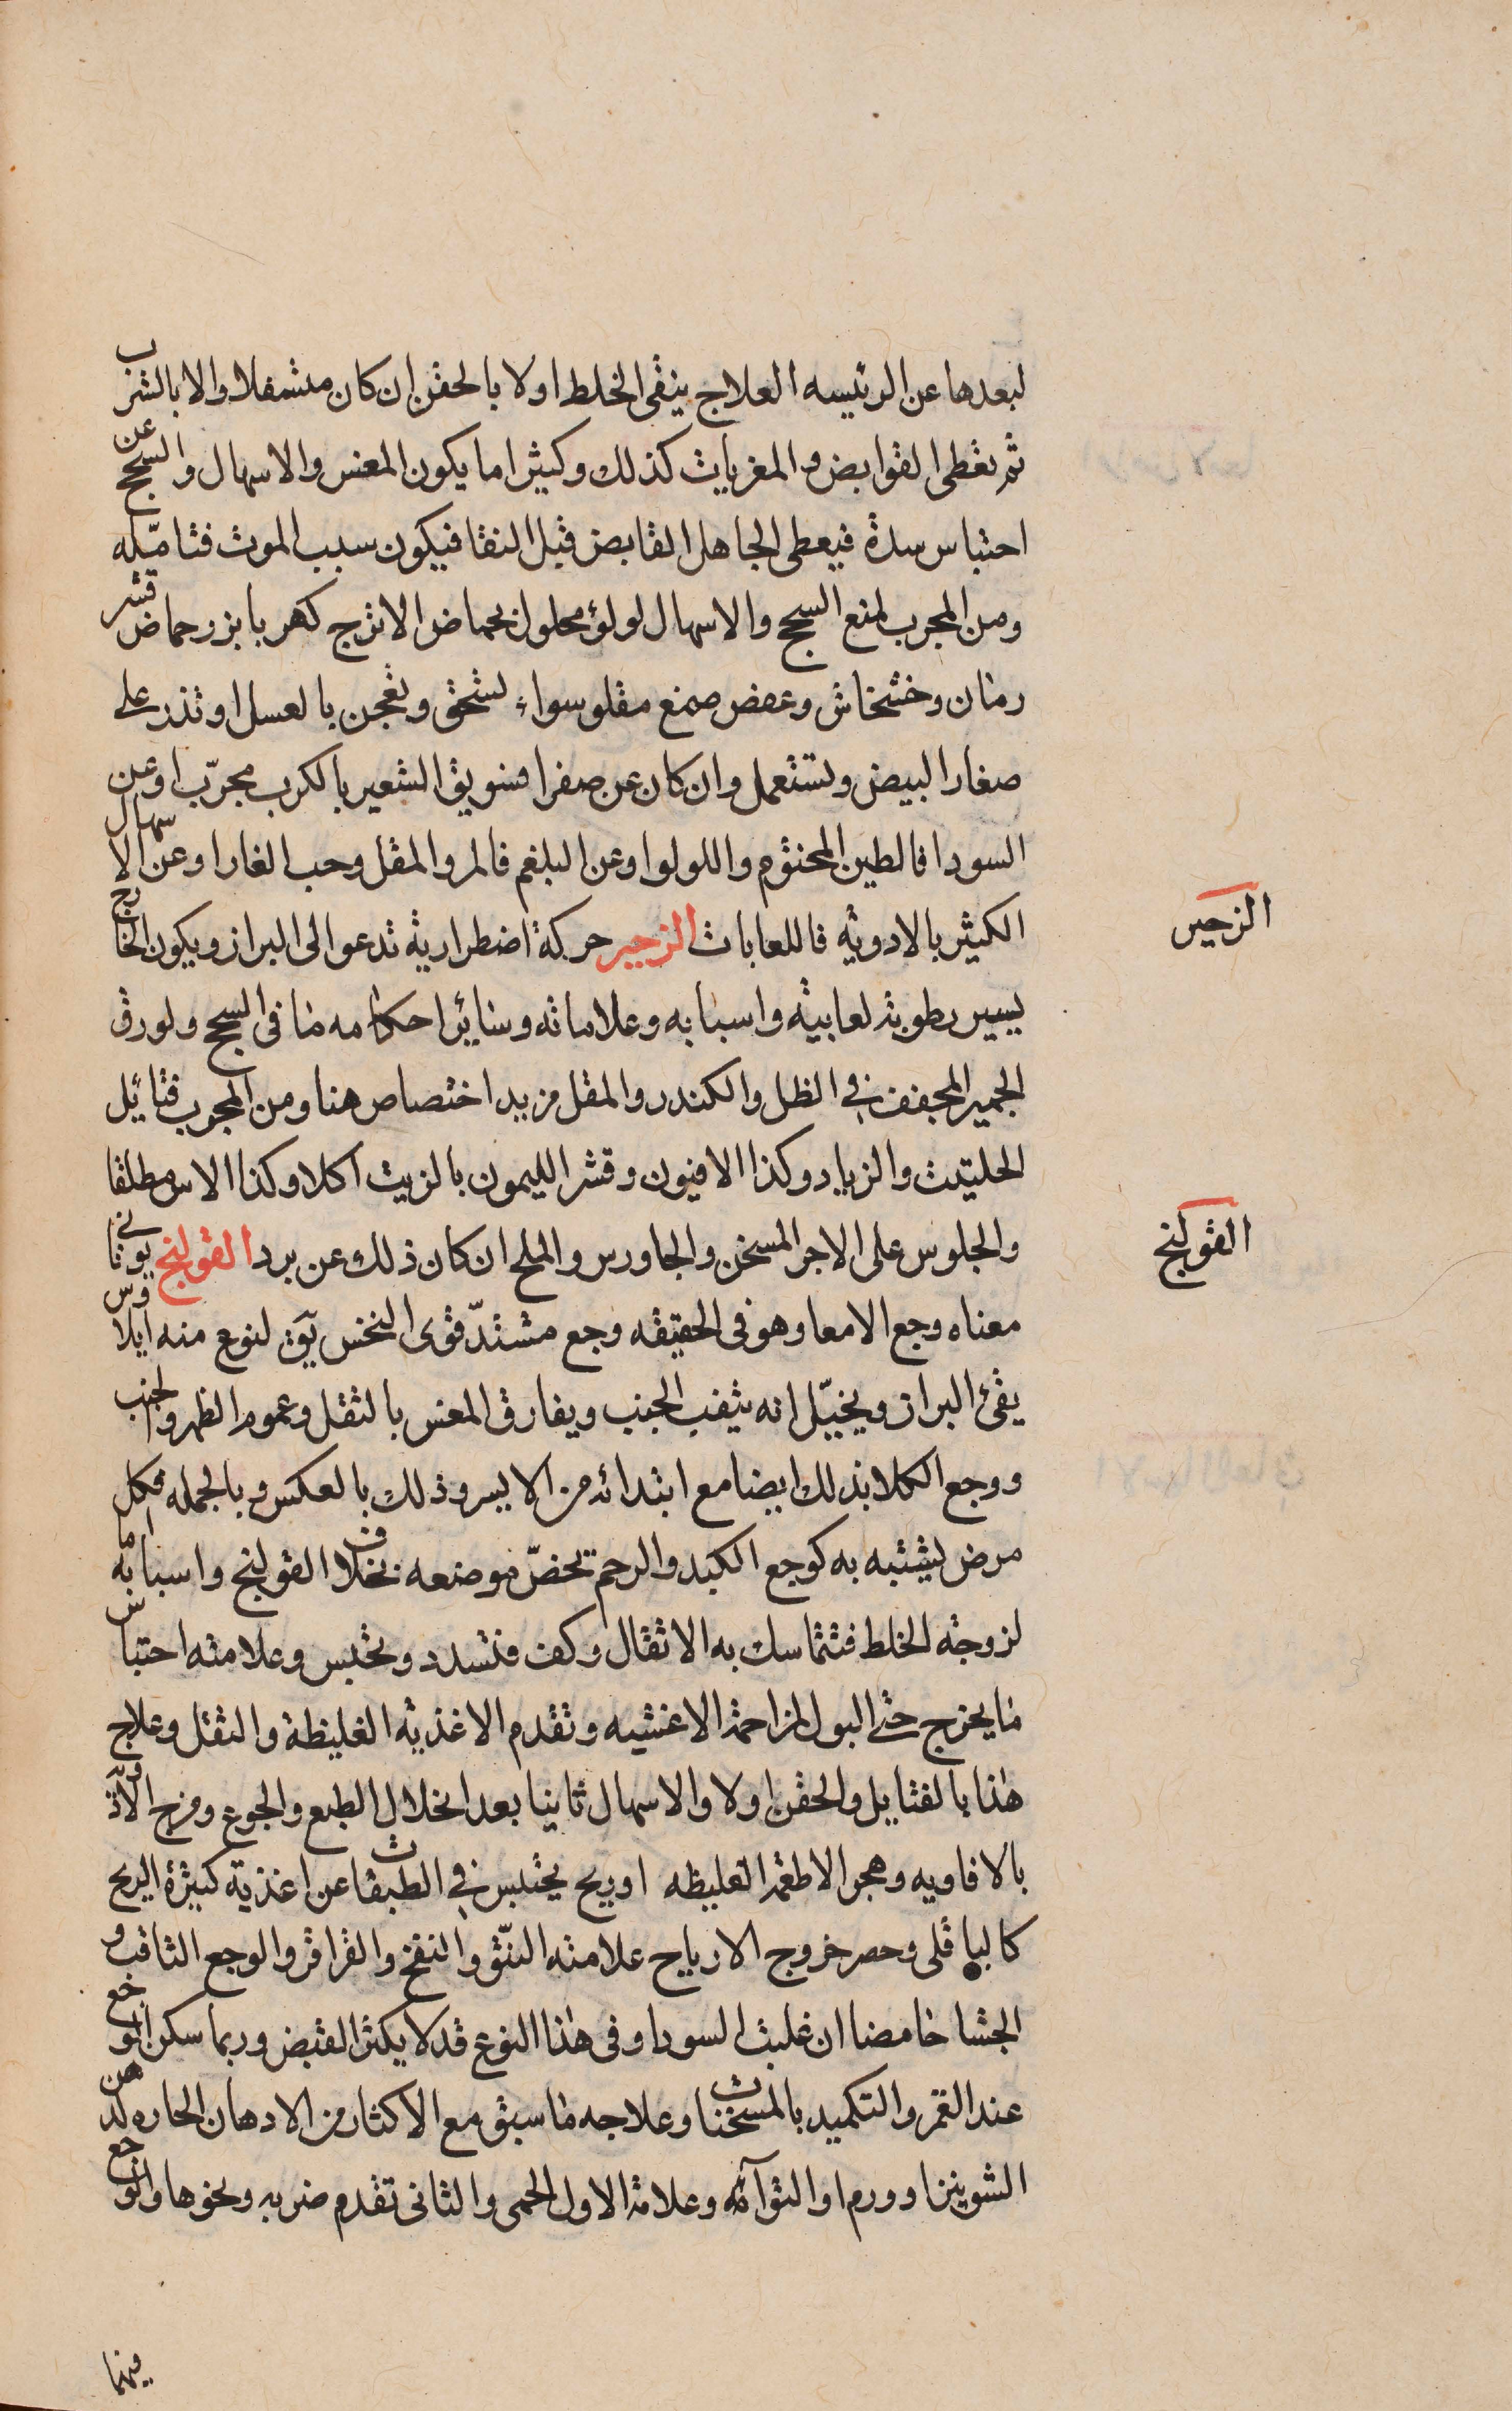 لبعدها عن الرئيسه العلاج ينقى الخلط اولا بالحقن ان كان متسفلا والا بالشرب
ثم تعطى القوابض والمغريات كذلك وكثيرا ما يكون المغس والاسهال والسحج عن
احتباس سدة فيعطى الجاهل القابض قبل النقا فيكون سبب الموت فتامّله
ومن المجرب لمنع السحج والاسهال لولؤ محلول بحماض الاترج كهربا بزر حماض قشر
رمان وخشخاش وعفص صمغ مقلو سواء تسحق وتعجن بالعسل او تذر على
صفار البيض وتستعمل وان كان عن صفرا فسويق الشعير بالكرب مجرّب او عن
السودا فالطين المختوم واللولو او عن البلغم فالمر والمقل وحب الغار او عن الاسهال
الكثير بالادويه فاللعابات الزحير حركة اضطرارية تدعو الى البراز ويكون الخارج
يسير رطوبة لعابية واسبابه وعلاماته وسائر احكامه ما فى السحج ولورق
الجميز المجفف فى الظل والكندر والمقل مزيد اختصاص هنا ومن المجرب فتائل
الحلتيت والزباد وكذا الافيون وقشر الليمون بالزيت اكلا وكذا الاس مطلقا
والجلوس على الاجر المسخن والجاورس والملح ان كان ذلك عن برد القولنج يونانى
معناه وجع الامعا وهو فى الحقيقه وجع مشتدّ قوى النخس يق لنوع منه ايلاوس
يقئ البراز ويخيّل انه يثقب الجنب ويفارق المغس بالثقل وعموم الظهر والجنب
ووجع الكلا بذلك ايضا مع ابتدائه من الايسر وذلك بالعكس وبالجمله فكل
مرض يشتبه به كوجع الكبد والرحم يخصّ موضعه بخلاف القولنج واسبابه اما
لزوجة الخلط فتتماسك به الاثقال وكف فتسدد وتحتبس وعلامته احتباس
ما يخرج حتى البول لمزاحمة الاغشيه وتقدم الاغذيه الغليظة والثقل وعلاج
هذا بالفتايل والحقن اولا والاسهال ثانيا بعد انحلال الطبع والجوع ومزج الادويه
بالافاويه وهجر الاطعمة الغليظه او ريح يحتبس فى الطبقات عن اغذية كثيرة الريح
كالباقلى وحصر خروج الارياح علامته النتّو والنفخ والقراقر والوجع الثاقب و
الجشا حامضا ان غلبت السودا وفى هذا النوع قد لا يكثر القبض وربما سكن الوجع
عند الغمز والتكميد بالمسخنات وعلاجه ما سبق مع الاكثار من الادهان الحاره كدهن
الشونيز او ورم او التوآئه وعلامة الاول الحمى والثانى تقدم ضربه ونحوها والوجع
فيهما
الزحير
القولنج